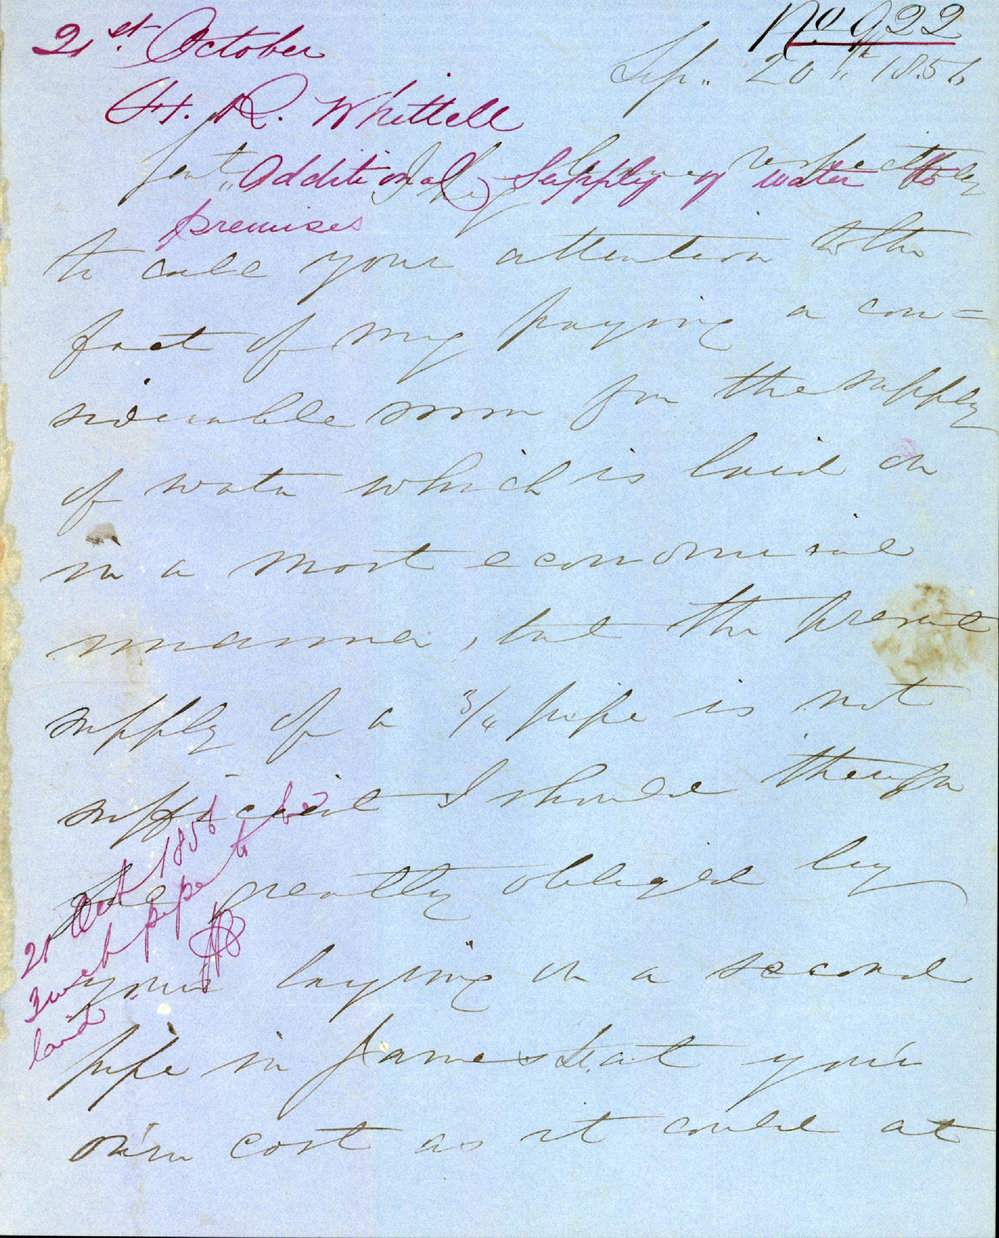 No 922
21st October
Sep. 20th 1856
H. R. Whittell
Additional Supply of water to
premises
Gent I beg leave respectfully
to call your attention to the
fact of my paying a con=
siderable sum for the supply
of water which is laid on
in a most economical
manner, but the present
supply of a 3/4 pipe is not
sufficient I should therefore
be greatly obliged by
your laying on a second
pipe in James St. at your
own cost as it could at
21 Oct 1856
3 inch pipe to be
laid